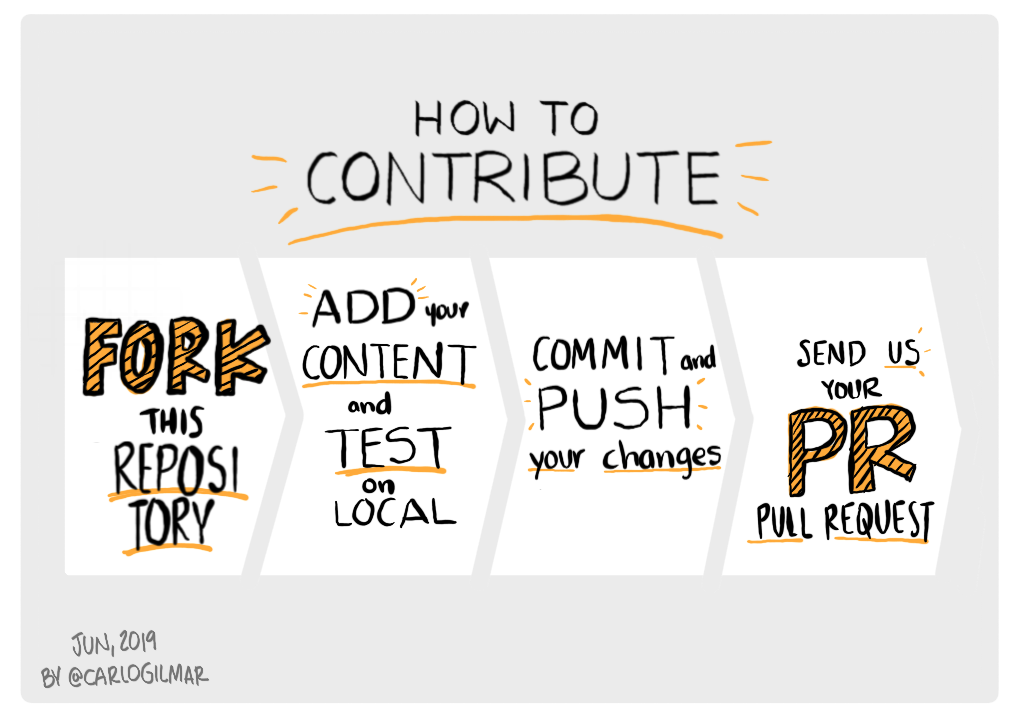 HOW TO
CONTRIBUTE
FORK
THIS
REPOSI
TORY
ADD your
CONTENT
and
TEST
on
LOCAL
COMMIT and
PUSH
your changes
SEND US
YOUR
PR
PULL REQUEST
JUN, 2019
BY @CARLOGILMAR